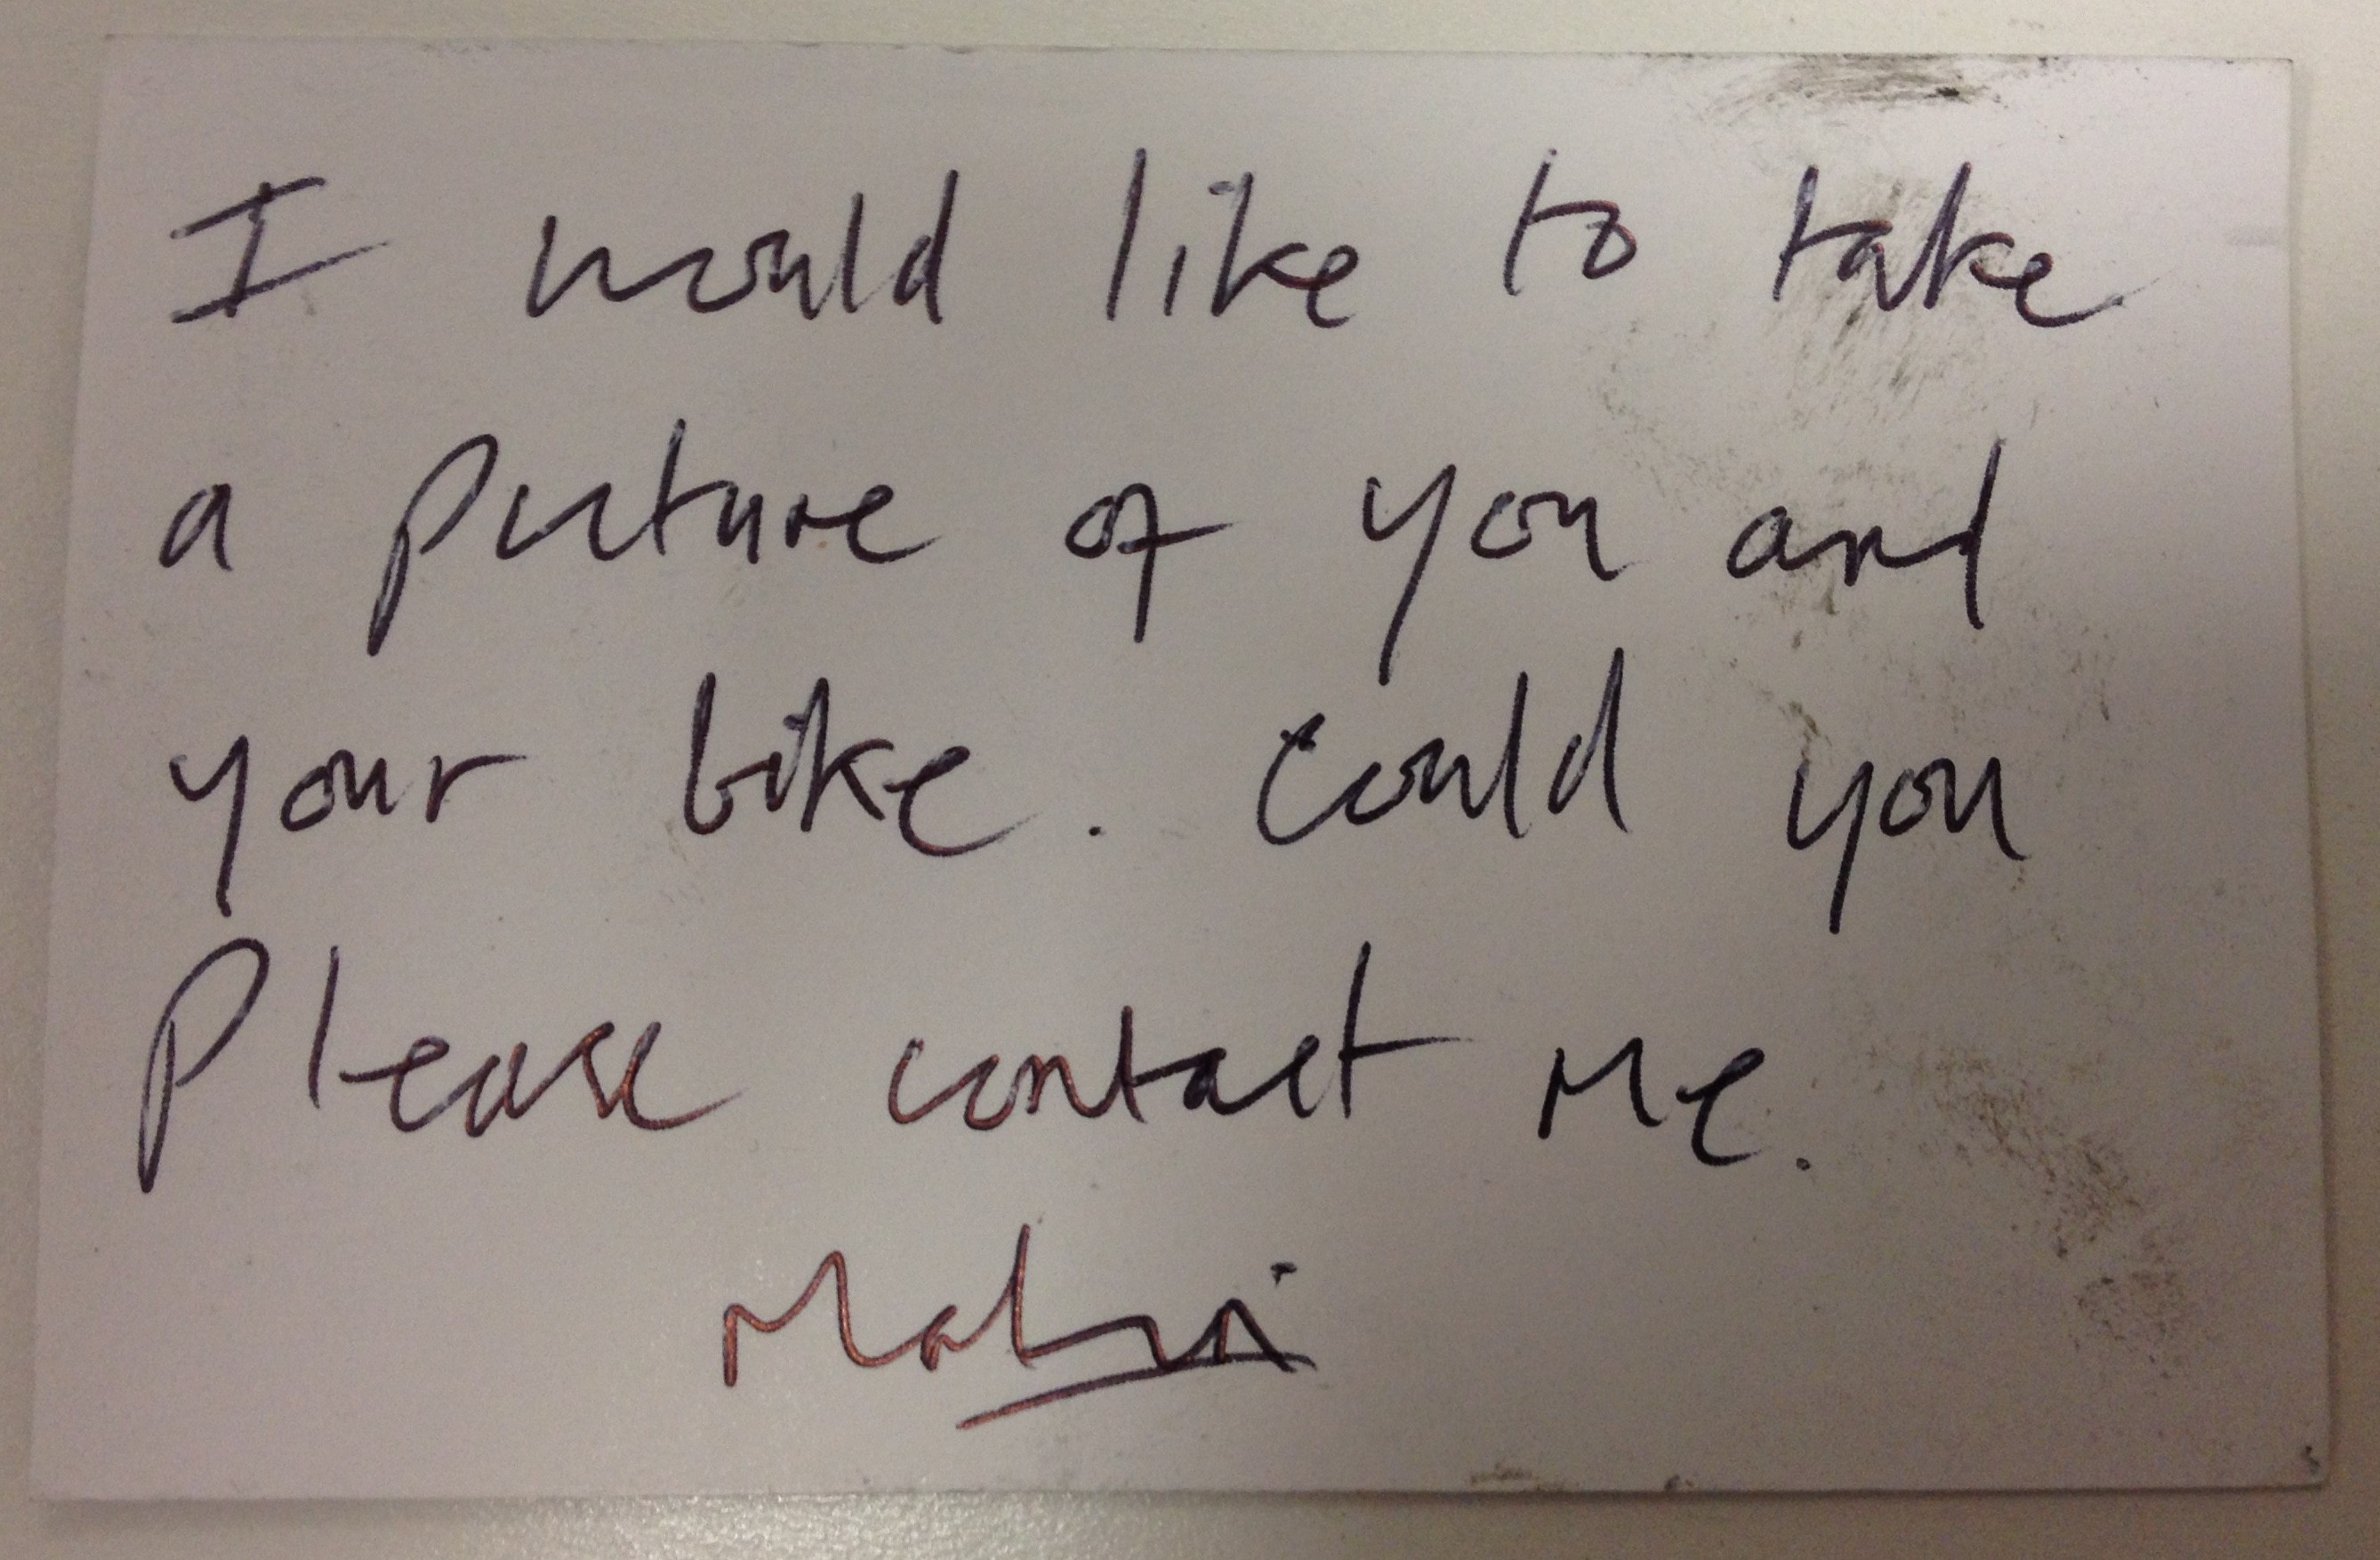 I would like to take
a picture of you and
your bike. Could you
Please contact me.